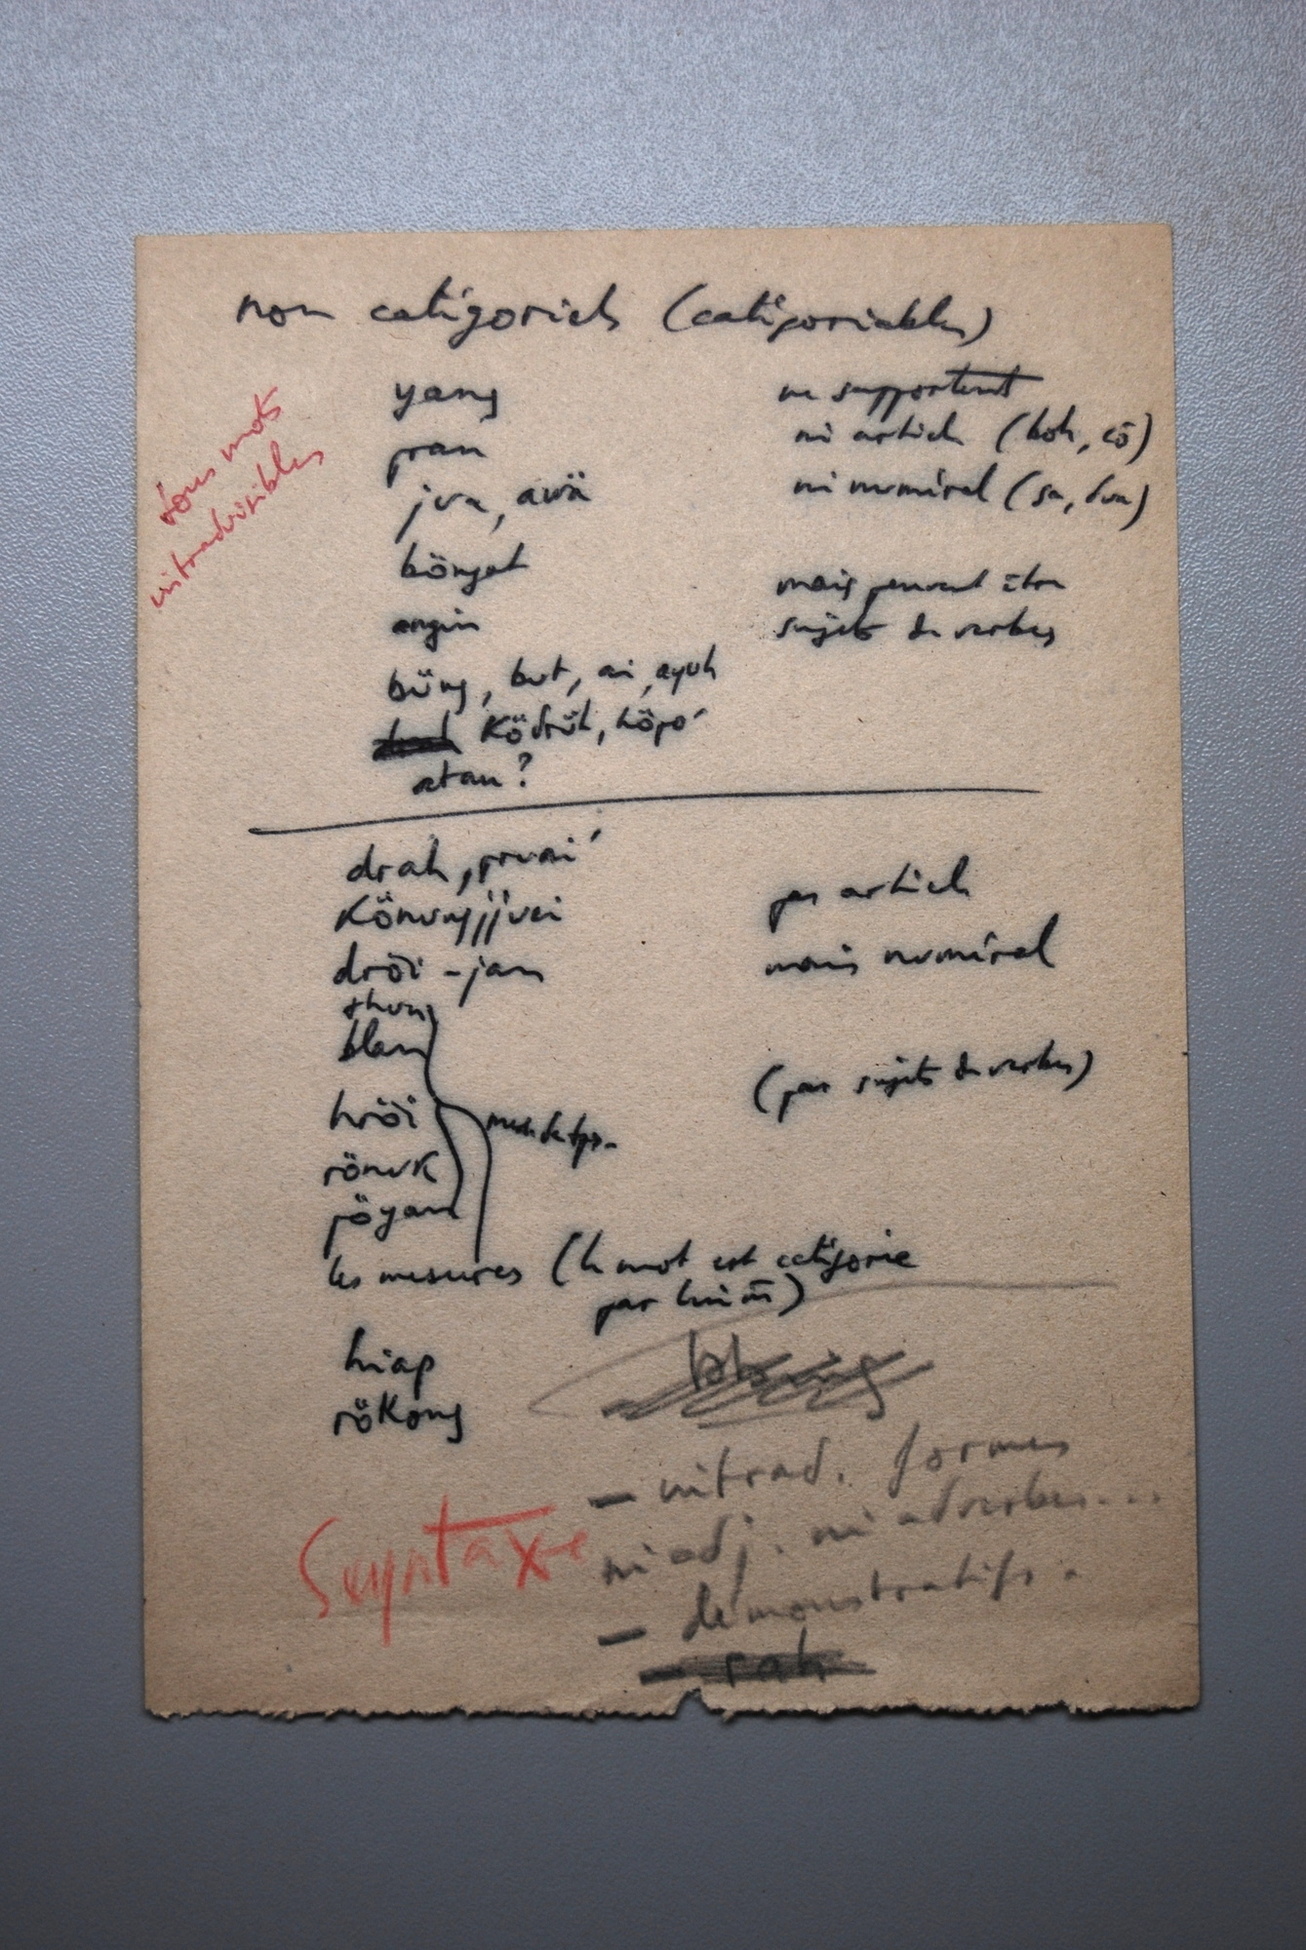 non catégoriels (catégoriables)
tous mots
intraduisibles
yang
pran
jua, awä
böngat
angin
büng, but, ai, ayuh
ködrüh, höpo'
atau ?
ne supportent
ni article (boh, cö)
ni numéral (sa, dua)
mais peuvent être
sujets de verbes
drah, pruai'
könungjjuei
dröi - jan
thun
blan
hröi
rönuk
jöyan
les mesures (le mot est catégorie
par lui m̄)
hiap
rökong
pas article
mais numéral
(pas sujets de verbes)
Syntaxe
— intrad. formes
ni adj. ni adverbes...
— démonstratifs.
— rah